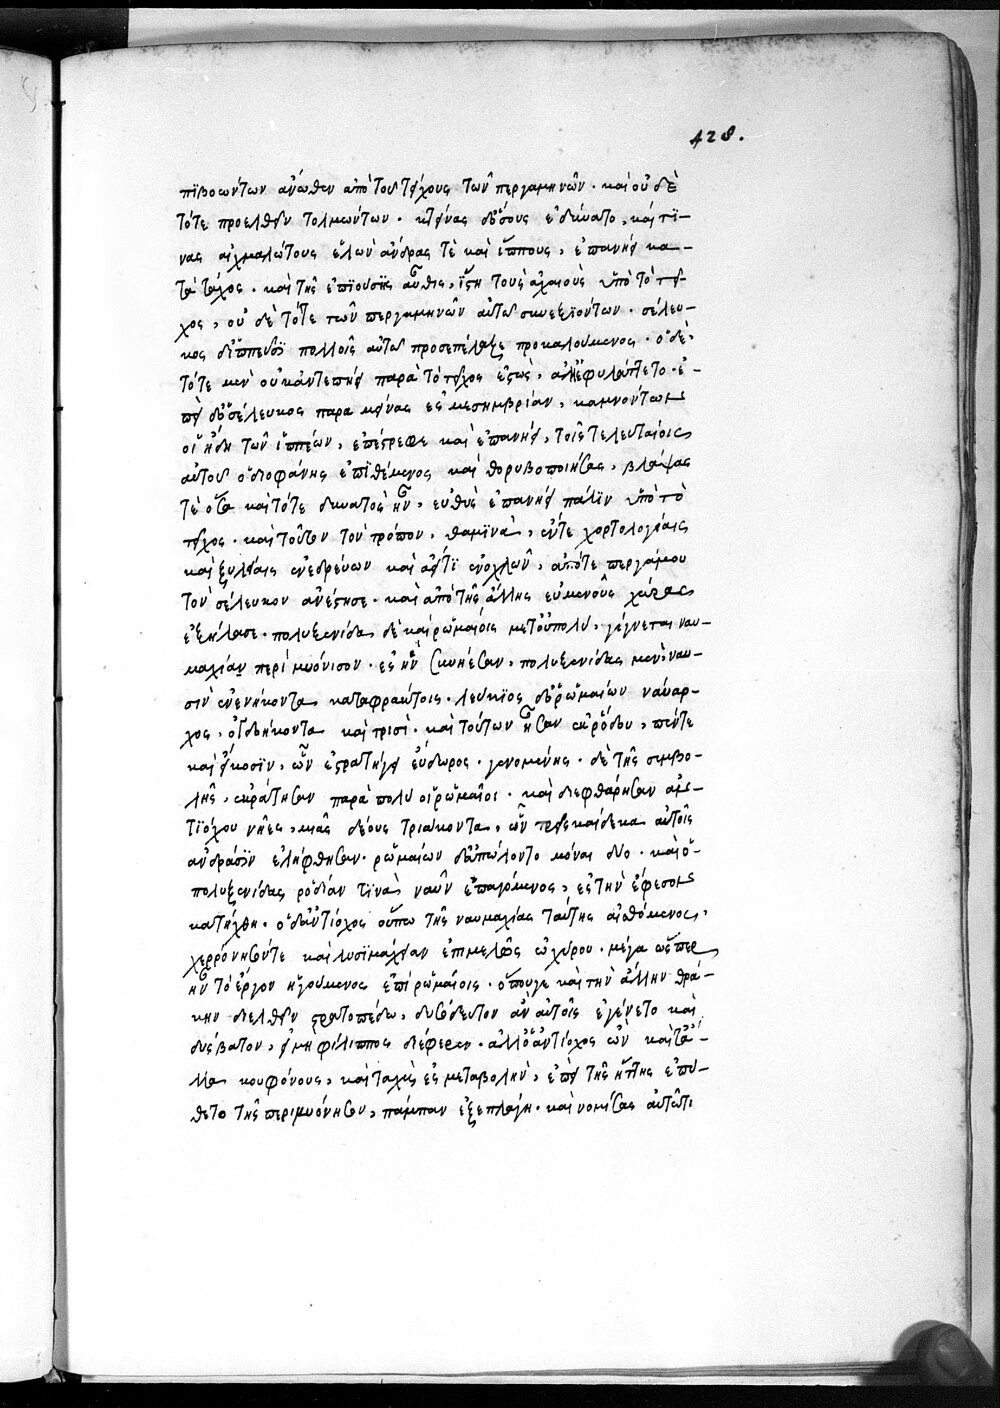 428.
πϊβοώντων ἀνωθεν ἀπὸ τοῦ τείχους τῶν περγαμηνῶν · καὶ οὐ δὲ
τότε προελθεῖν τολμώντων · κτείνας δ' ὅσους ἐδύνατο, καί τϊ-
νας αἰχμαλώτους ἑλὼν ἄνδρας τὲ καὶ ἵππους, ἐπανῄει κα-
τὰ τάχος · καὶ τῆς ἐπϊούσης αὖθις, ἵστη τοὺς ἀχαιοὺς ὑπὸ τὸ τεῖ-
χος, οὐ δὲ τότε τῶν περγαμηνῶν αὐτῶ συνεξϊόντων · σέλευ-
κος δ' ἱππεῦσϊ πολλοῖς αὐτῶ προσεπέλαζε προκαλούμενος · ὁ δὲ
τότε μὲν οὐκ ἀντεπῄει παρὰ τὸ τεῖχος ἑστὼς, ἀλλ' ἐφυλάττετο · ἐ-
πεὶ δ' ὁ σέλευκος παραμείνας ἐς μεσημβρίαν, καμνόντων
οἱ ἤδη τῶν ἱππέων, ἐπέστρεφε καὶ ἐπανῄει, τοῖς τελευταίοις
αὐτοῦ ὁ διοφάνης ἐπϊθέμενος καὶ θορυβοποιήσας, βλάψας
τὲ ὅσα καὶ τότε δυνατὸς ἦν, εὐθὺς ἐπανῄει πάλϊν ὑπὸ τὸ
τεῖχος · καὶ τοῦτον τὸν τρόπον, θαμϊνὰ, ἔν τε χορτολογίαις
καὶ ξυλείαις ἐνεδρεύων καὶ ἀεί τϊ ἐνοχλῶν, ἀπό τε περγάμου
τὸν σέλευκον ἀνέστησε · καὶ ἀπὸ τῆς ἄλλης εὐμενοῦς χώρας
ἐξήλασε · πολυξενίδα δὲ καὶ ῥωμαίοις μετ' οὐ πολὺ, γίγνεται ναυ-
μαχία περὶ μυόνισον · ἐς ἣν συνῄεσαν, πολυξενίδας μὲν ναυ-
σὶν ἐνενήκοντα καταφράκτοις · λεύκϊος δ' ὁ ῥωμαίων ναύαρ-
χος, ὀγδοήκοντα καὶ τρισὶ · καὶ τούτων ἦσαν ἐκ ῥόδου, πέντε
καὶ εἴκοσϊν, ὧν ἐστρατήγει εὔδωρος · γενομένης · δὲ τῆς συμβο-
λῆς, ἐκράτησαν παρὰ πολὺ οἱ ῥωμαῖοι · καὶ διεφθάρησαν ἀν-
τϊόχου νῆες, μιᾶς δέους τριάκοντα, ὧν τρισκαίδεκα αὐτοῖς
ἀνδράσϊν ἐλήφθησαν · ῥωμαίων δ' ἀπώλοντο μόναι δύο · καὶ ὁ
πολυξενίδας ῥοδίαν τϊνὰ ναῦν ἐπαγόμενος, ἐς τὴν ἔφεσον
κατήχθη · ὁ δ' ἀντϊόχος οὔπω τῆς ναυμαχίας ταύτης αἰσθόμενος,
χερρόνησόν τε καὶ λυσϊμάχειαν ἐπιμελῶς ὠχύρου · μέγα ὥσπερ
ἦν τὸ ἔργον ἡγούμενος ἐπὶ ῥωμαίοις · ὅπου γε καὶ τὴν ἄλλην θρά-
κην διελθεῖν στρατοπέδω, δυσόδευτον ἂν αὐτοῖς ἐγένετο καὶ
δύσβατον, εἰ μὴ φίλιππος διέφερεν · ἀλλ' ὁ ἀντίοχος ὢν καὶ τἄ-
λλα κουφόνους, καὶ ταχὺς ἐς μεταβολὴν, ἐπεὶ τῆς ἥττης ἐπύ-
θετο τῆς περὶ μυόνησον, πάμπαν ἐξεπλάγη · καὶ νομίσας αὐτῶ τι